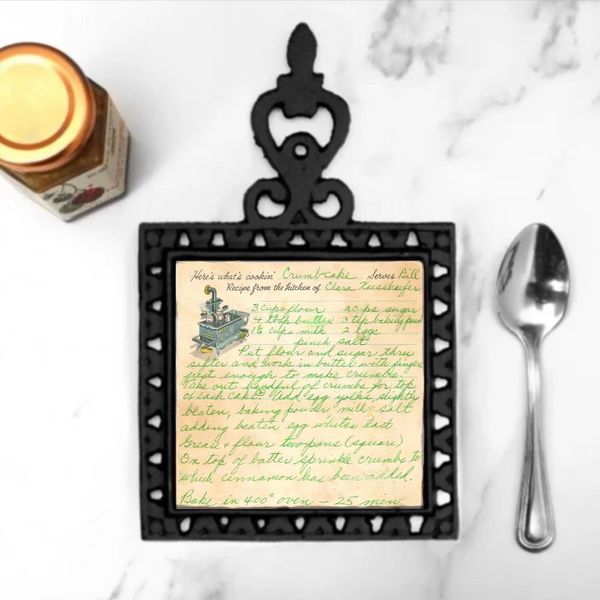 Here's what's cookin' Crumbcake Serves Bill
Recipe from the kitchen of Clara
3 cups flour 2 cps sugar
4 tbsp butter 3 tsp baking powd
1½ cups milk 2 eggs
pinch salt
Put flour and sugar thru
sifter and work in butter with fingers
just enough to make crumbs.
Take out handful of crumbs for top
of each cake. Add egg yolks, slightly
beaten, baking powder milk + salt
adding beaten egg whites last.
Grease + flour two pans (square)
On top of batter sprinkle crumbs to
which cinnamon has been added.
Bake in 400° oven – 25 min